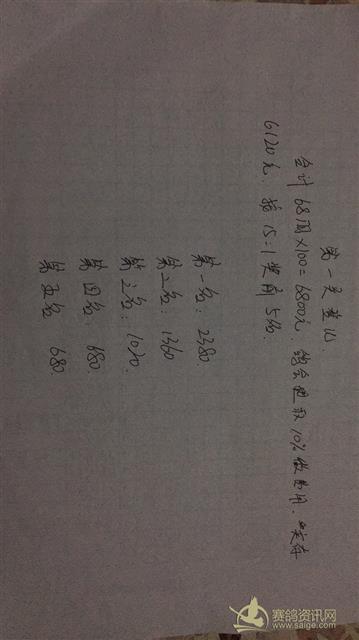 第一关奖
合计 68羽×100=6800元 鸽会提取10%做费用. 实存
6120元. 按15=1奖前5名.
第一名: 2380
第二名: 1360
第三名: 1020.
第四名: 680.
第五名 680.
赛鸽资讯网
www.saige.com